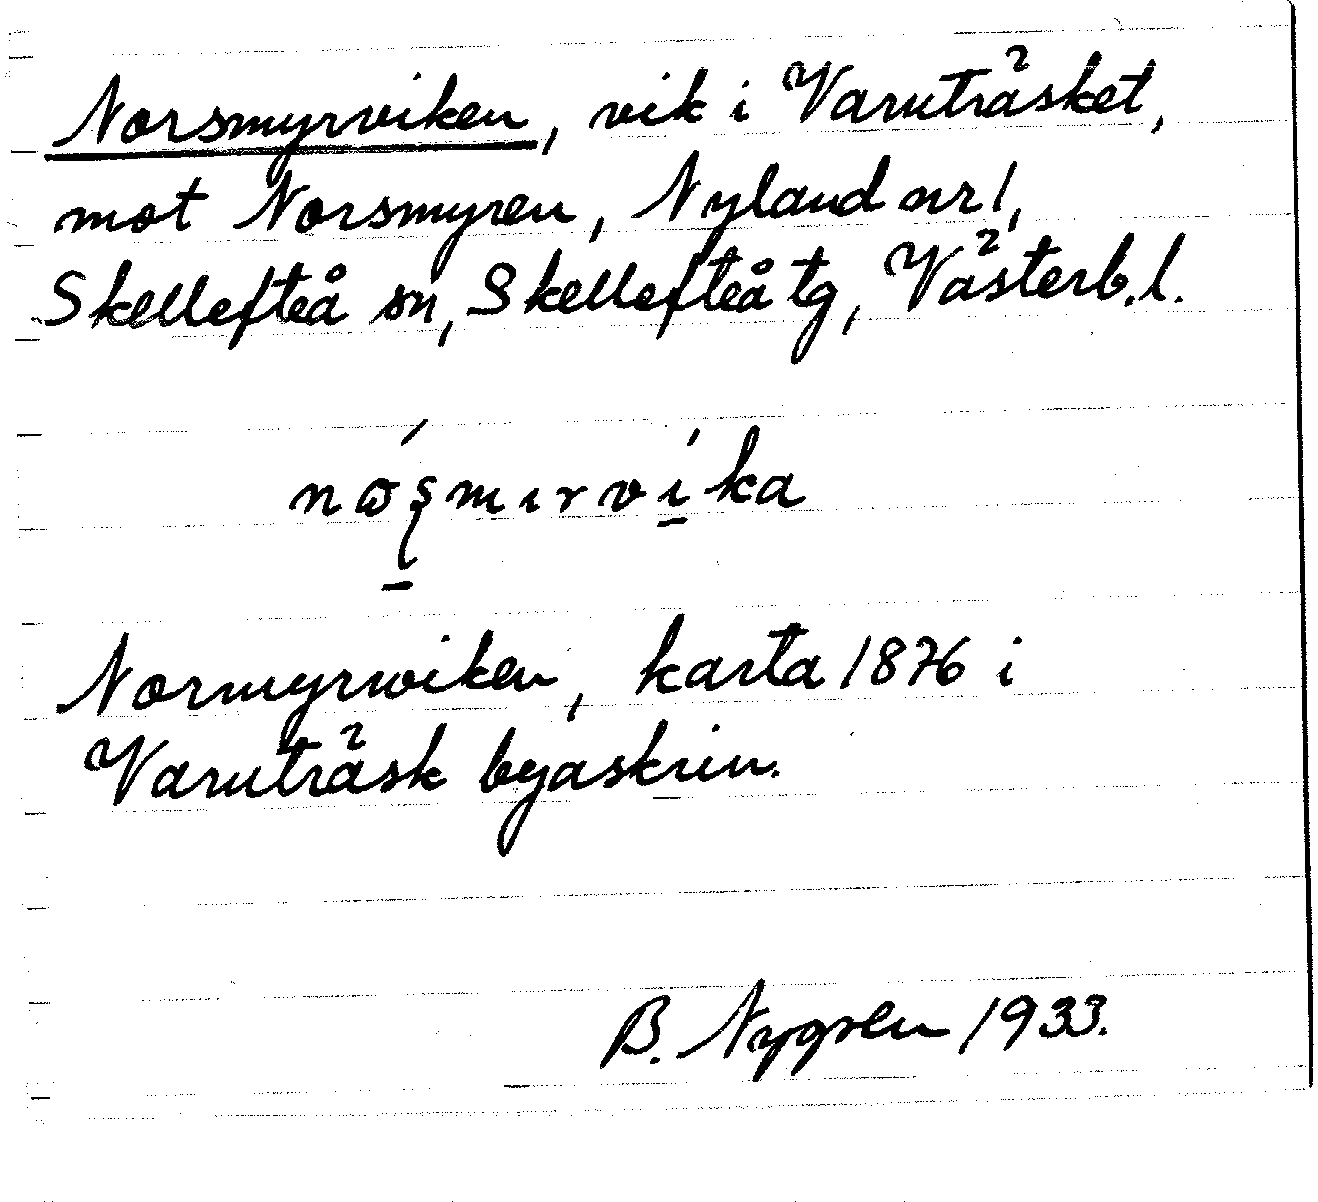 Norsmyrviken, vik i Varuträsket,
mot Norsmyren, Nyland nr 1,
Skellefteå sn, Skellefteå tg, Västerb. l.
nɷ́ʂmɪrvíka
Normyrwiken, karta 1876 i
Varuträsk byaskrin.
B. Nygren 1933.